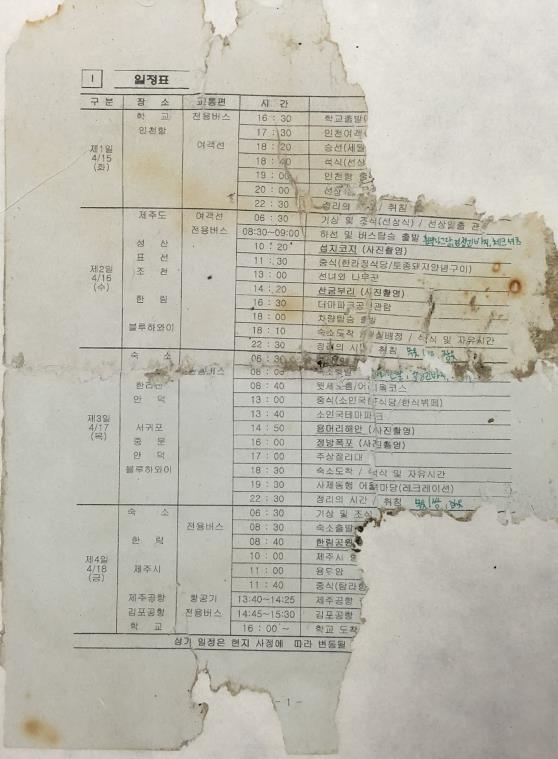 I 일정표
구 분 장 소 교통편 시 간
제1일 4/15 (화) 학 교 전용버스 16 : 30 학교출발
인천항 17 : 30 인천여객
여객선 18 : 20 승선(세월
18 : 40 석식(선상
19 : 00 인천항
20 : 00 선상
22 : 30 정리의 / 취침
제2일 4/16 (수) 제주도 여객선 06 : 30 기상 및 조식(선상식) / 선상일출 관
전용버스 08:30~09:00 하선 및 버스탑승 출발
성 산 10 : 20 섭지코지 (사진촬영)
표 선 11 : 30 중식(한라정식당/토종돼지양념구이)
조 천 13 : 00 선녀와 나무꾼
14 : 20 산굼부리 (사진촬영)
한 림 16 : 30 더마파크공연관람
18 : 00 차량탑승 출발
블루하와이 18 : 10 숙소도착 / 실배정 / 석식 및 자유시간
22 : 30 정리의 시간 / 취침
제3일 4/17 (목) 숙 소 06 : 30
08 : 00 숙소출발
한라산 08 : 40 윗세오름/어리목코스
안 덕 13 : 00 중식(소인국 식당/한식뷔페)
13 : 40 소인국테마파크
서귀포 14 : 50 용머리해안 (사진촬영)
중 문 16 : 00 정방폭포 (사진촬영)
안 덕 17 : 00 주상절리대
블루하와이 18 : 30 숙소도착 / 석식 및 자유시간
19 : 30 사제동행 어울 마당(레크레이션)
22 : 30 정리의 시간 / 취침
제4일 4/18 (금) 숙 소 06 : 30 기상 및 조식
전용버스 08 : 30 숙소출발
한 림 08 : 40 한림공원
10 : 00 제주시
제주시 11 : 00 용두암
11 : 40 중식(탐라
제주공항 항공기 13:40~14:25 제주공항
김포공항 전용버스 14:45~15:30 김포공항
학 교 16 : 00 ~ 학교 도착
상기 일정은 현지 사정에 따라 변동될
- 1 -